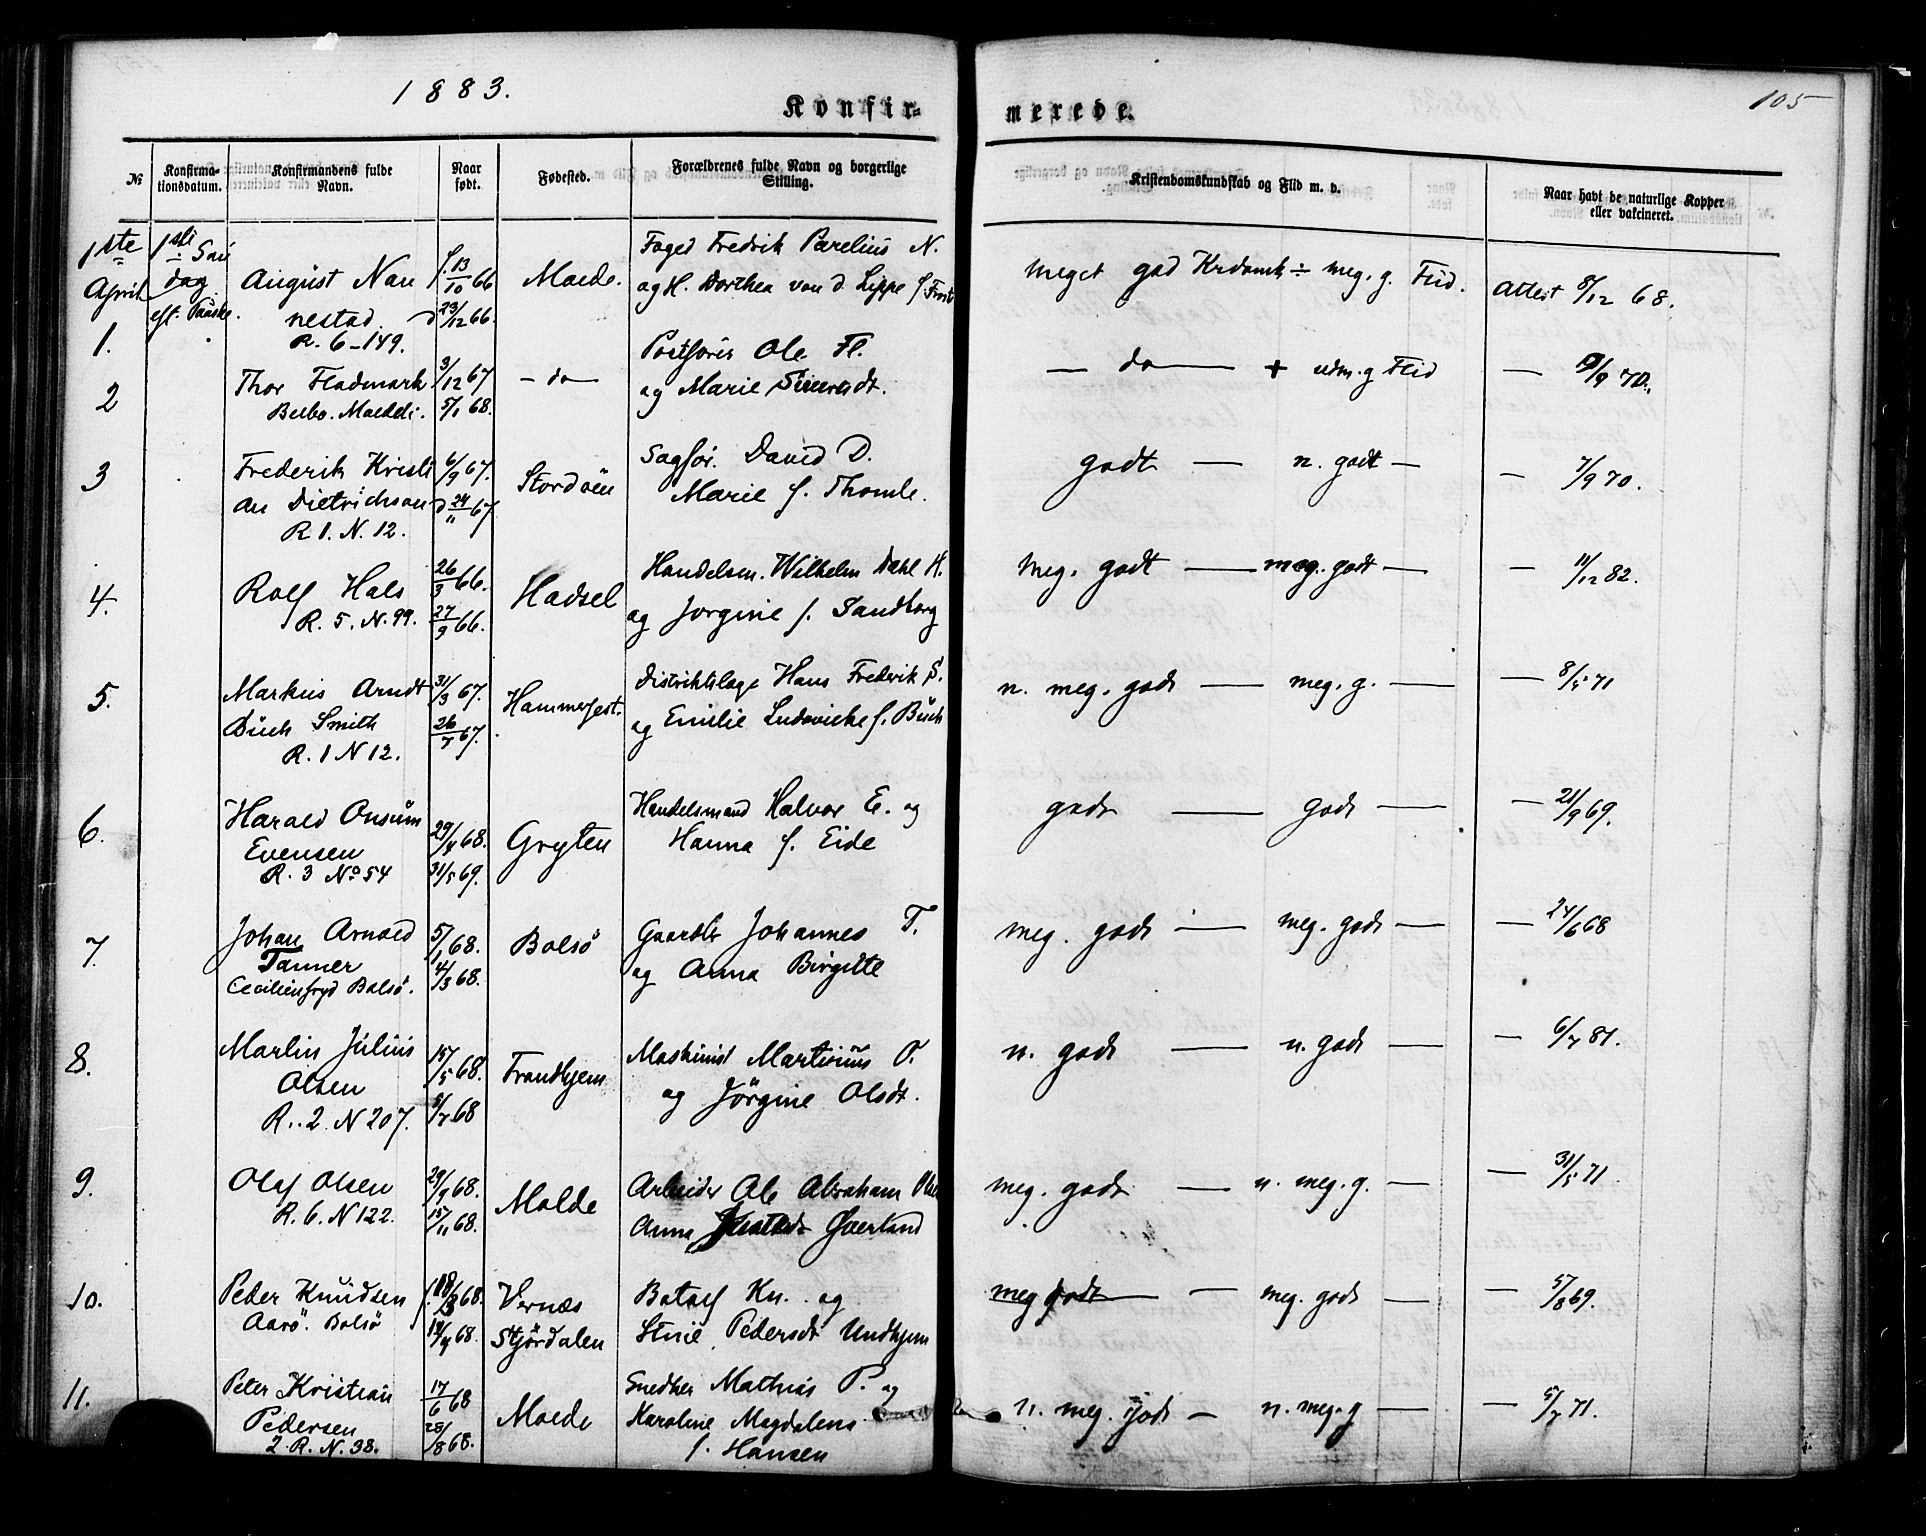 1883.
Konfir-
merede.
105
№
Konfirma-
tionsdatum.
Konfirmandens fulde
Navn.
Naar
født.
Fødested.
Forældrenes fulde Navn og borgerlige
Stilling.
Kristendomskundskab og Flid m. v.
Naar havt de naturlige Kopper
eller vakcineret.
1ste
April
1.
1ste Søn
dag
eft. Paaske.
August Nan
nestad
R. 6-149.
f. 13/10 66
d 23/12 66.
Molde.
Foged Fredrik Parelius N.
og H. Dorthea von d. Lippe f.
meget god Krdomk ÷ meg. g. Flid.
Attest 8/12 68.
2
Thor Fladmark
3/12 67
5/1 68.
— do —
Postfører Ole Fl.
og Marie
— do — + udm. g Flid
— /9 70.
3
Frederik Kristi
an Dietrichson
R 1. N. 12.
6/9 67.
d 24/" 67
Stordøen
Sagfør. David D.
Marie f. Thomle.
godt — n. godt —
— 7/9 70.
4.
Rolf Hals
R. 5. N. 99.
26/3 66.
27/9 66.
Hadsel
Handelsm. Wilhelm Dahl H.
og Jørgine f. Sandborg
Meg. godt — meg. godt —
— 11/12 82.
5.
Markus Arndt
Buch Smith
R. 1 N 12.
31/3 67.
26/7 67.
Hammerfest.
Distriktslæge Hans Frederik S.
og Emilie Ludovicke f. Buch
n. meg. godt — meg. g. —
— 8/5 71
6.
Harald Onsum
Evensen
R. 3 No 54
29/4 68.
31/5 69.
Gryten
Handelsmand Halvor E. og
Hanna f. Eide
godt — godt —
— 21/9 69.
7.
Johan Arnold
Tanner
Cecilienfryd Bolsö.
5/1 68.
4/3 68.
Bolsö
Gaardbr Johannes T.
og Anna Birgitte
meg. godt — meg. godt —
— 24/6 68
8.
Martin Julius
Olsen
R.. 2. N 207.
15/5 68.
5/7 68
Trondhjem
Maskinist Martinius O.
og Jörgine Olsdt.
n. godt — n. godt —
— 6/7 81.
9.
Olaf Olsen
R. 6. N 122.
29/9 68.
15/11 68.
Molde
Arbeider Ole Abraham
Anna Överland
meg. godt — n. meg. g. —
— 31/5 71
10.
Peder Knudsen
Aarö. Bolsö
f. 18/3 68.
19/4 68.
Vernæs
Stjördalen
Botolf Kn. og
Stine Pedersdt Undhjem
meg godt — meg. godt —
— 5/8 69.
11.
Peter Kristian
Pedersen
2. R. N. 38.
17/6 68
28/8 68.
Molde
Snedker Mathias P. og
Karoline Magdalene
f. Hansen
n. meg. godt — n. meg. g —
— 5/7 71.